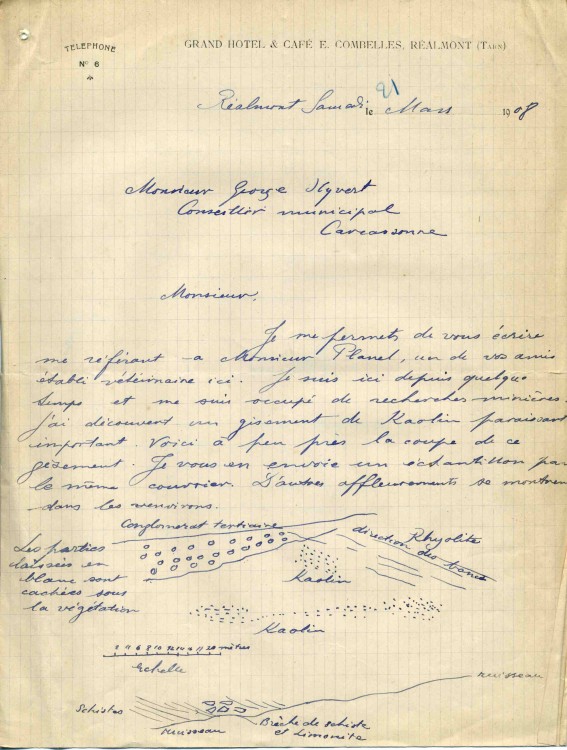 TELEPHONE
N° 6
GRAND HOTEL & CAFÉ E. COMBELLES, RÉALMONT (TARN)
Réalmont Samedi le 21 Mars 1908
Monsieur George Hyvert
Conseiller municipal
Carcassonne
Monsieur,
Je me permets de vous écrire
me référant a Monsieur Planel, un de vos amis
établi vétérinaire ici. Je suis ici depuis quelque
temps et me suis occupé de recherches minières.
J'ai découvert un gisement de Kaolin paraissant
important. Voici à peu près la coupe de ce
gisement. Je vous en envoie un échantillon par
le même courrier. D'autres affleurements se montrent
dans les environs.
Conglomérat tertiaire
Rhyolite
direction des bancs
Les parties
laissées en
blanc sont
cachées sous
la végétation
Kaolin
Kaolin
0 2 4 6 8 10 12 14 16 18 20 mètres
Echelle
ruisseau
Schistes
ruisseau
Brèche de schiste
et limonite